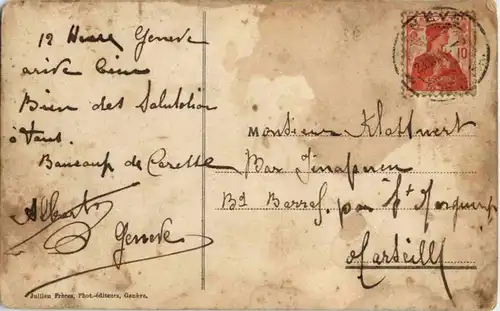 12 Heures Geneve
arivé bien
Bien des Salutation
à tous.
Baucoup de Carette
Albert
Geneve
Jullien Frères, Phot.-éditeurs, Genève.
GENÈVE
10
Monsieur Klaffwert
Bar
Bd par St
Marseille